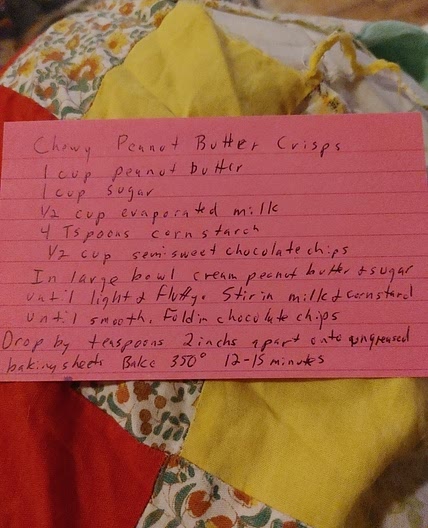 Chewy Peanut Butter Crisps
1 cup peanut butter
1 cup sugar
1/2 cup evaporated milk
4 Tspoons cornstarch
1/2 cup semisweet chocolate chips
In large bowl cream peanut butter & sugar
until light & fluffy. Stir in milk & cornstarch
until smooth. Fold in chocolate chips
Drop by teaspoons 2 inchs apart onto ungreased
baking sheets Bake 350° 12-15 minutes